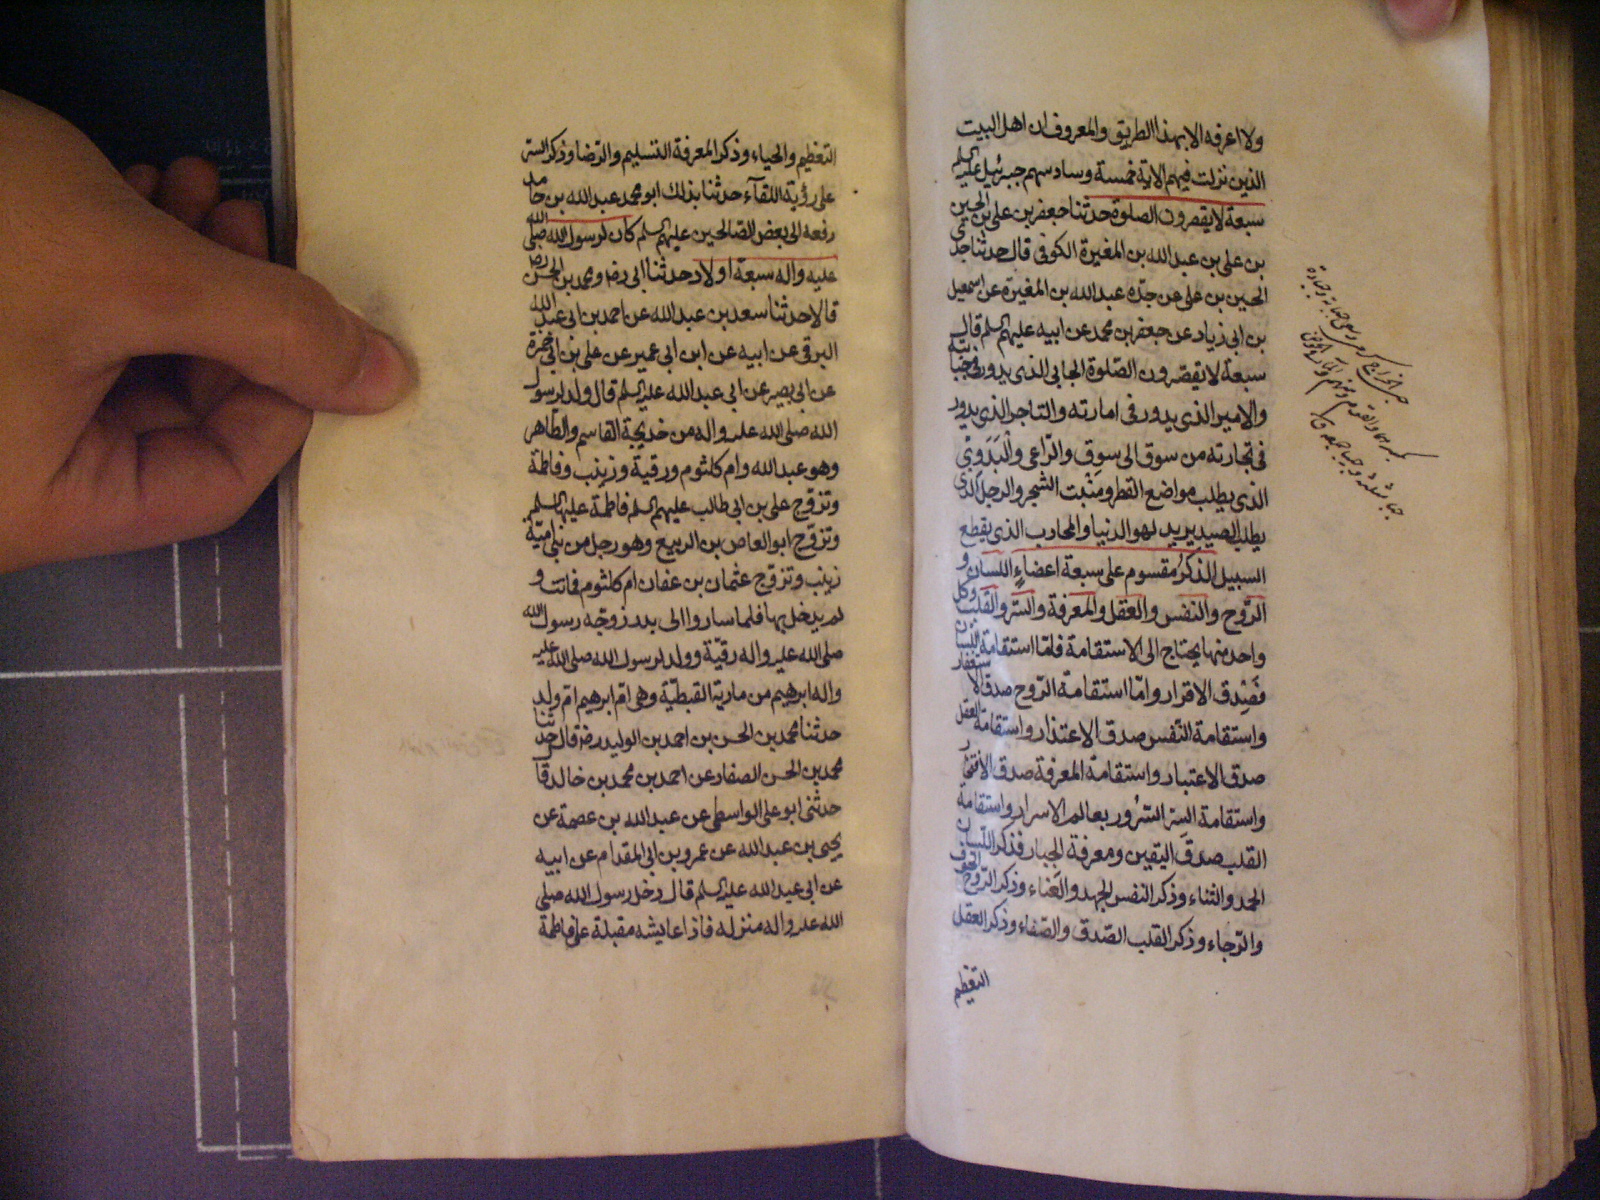 ولا اعرفه الا بهذا الطريق والمعروف ان اهل البيت
الذين نزلت فيهم الاية خمسة وسادسهم جبرئيل عليه السلم
سبعة لا يقصرون الصلوة حدثنا جعفر بن علي بن الحسين
بن علي بن عبد الله بن المغيرة الكوفي قال حدثنا جدي
الحسين بن علي عن جده عبد الله بن المغيرة عن اسمعيل
بن ابي زياد عن جعفر بن محمد عن ابيه عليهم السلم قال
سبعة لا يقصرون الصلوة الجابي الذي يدور في جبايته
والامير الذي يدور في امارته والتاجر الذي يدور
في تجارته من سوق الى سوق والراعي والبدوي
الذي يطلب مواضع القطر ومنبت الشجر والرجل الذي
يطلب الصيد يريد لهو الدنيا والمحارب الذي يقطع
السبيل الذكر مقسوم على سبعة اعضاء اللسان و
الروح والنفس والعقل والمعرفة والسر والقلب وكل
واحد منها يحتاج الى الاستقامة فاما استقامة اللسان
فصدق الاقرار واما استقامة الروح صدق الاستغفار
واستقامة النفس صدق الاعتذار واستقامة العقل
صدق الاعتبار واستقامة المعرفة صدق الافتخار
واستقامة السر السرور بعالم الاسرار واستقامة
القلب صدق اليقين ومعرفة الجبار فذكر اللسان
الحمد والثناء وذكر النفس الجهد والعناء وذكر الروح الخوف
والرجاء وذكر القلب الصدق والصفاء وذكر العقل
التعظيم
التعظيم والحياء وذكر المعرفة التسليم والرضا وذكر السر
على رؤية اللقآء حدثنا بذلك ابو محمد عبد الله بن حامد
رفعه الى بعض الصالحين عليهم السلم كان لرسول الله صلى الله
عليه واله سبعة اولاد حدثنا ابي رض ومحمد بن الحسن رض
قالا حدثنا سعد بن عبد الله عن احمد بن ابي عبد الله
البرقي عن ابيه عن ابن ابي عمير عن علي بن ابي حمزة
عن ابي بصير عن ابي عبد الله عليه السلم قال ولد لرسول
الله صلى الله عليه واله من خديجة القاسم والطاهر
وهو عبد الله وام كلثوم ورقية وزينب وفاطمة
وتزوج علي بن ابي طالب عليهم السلم فاطمة عليها السلم
وتزوج ابو العاص بن الربيع وهو رجل من بني امية
زينب وتزوج عثمان بن عفان ام كلثوم فماتت و
لم يدخل بها فلما ساروا الى بدر زوجه رسول الله
صلى الله عليه واله رقية وولد لرسول الله صلى الله عليه
واله ابرهيم من مارية القبطية وهي ام ابرهيم ام ولد
حدثنا محمد بن الحسن بن احمد بن الوليد رض قال حدثنا
محمد بن الحسن الصفار عن احمد بن محمد بن خالد قال
حدثني ابو علي الواسطي عن عبد الله بن عصمة عن
يحيى بن عبد الله عن عمرو بن ابي المقدام عن ابيه
عن ابي عبد الله عليه السلم قال دخل رسول الله صلى
الله عليه واله منزله فاذا عايشه مقبلة على فاطمة